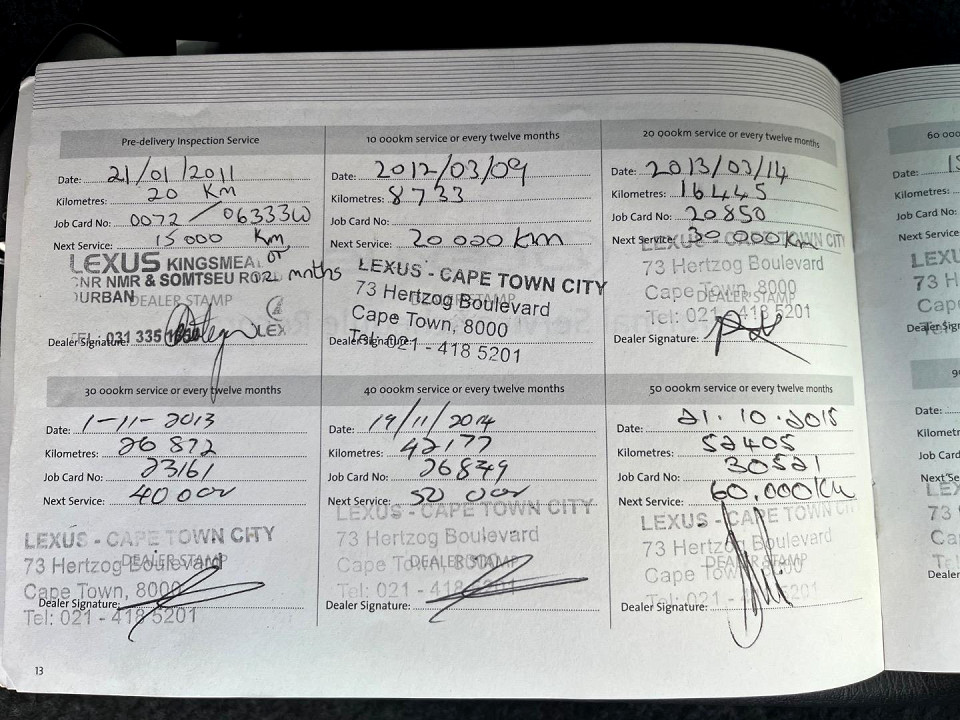 Pre-delivery Inspection Service
Date: 21/01/2011
Kilometres: 20 Km
Job Card No: 0072/06333W
Next Service: 15 000 Km or
12 mnths
LEXUS KINGSMEA
CNR NMR & SOMTSEU ROAD
DURBAN
DEALER STAMP
TEL: 031 335
LEX
Dealer Signature:
10 000km service or every twelve months
Date: 2012/03/09
Kilometres: 8733
Job Card No:
Next Service: 20 000 km
LEXUS - CAPE TOWN CITY
73 Hertzog Boulevard
DEALER STAMP
Cape Town, 8000
Tel: 021 - 418 5201
Dealer Signature:
20 000km service or every twelve months
Date: 2013/03/14
Kilometres: 16445
Job Card No: 20850
Next Service: 30 000km
LEXUS - CAPE TOWN CITY
73 Hertzog Boulevard
Cape Town, 8000
DEALER STAMP
Tel: 021 - 418 5201
Dealer Signature:
30 000km service or every twelve months
Date: 1-11-2013
Kilometres: 26 872
Job Card No: 23161
Next Service: 40 000
LEXUS - CAPE TOWN CITY
73 Hertzog Boulevard
DEALER STAMP
Cape Town, 8000
Dealer Signature:
Tel: 021 - 418 5201
40 000km service or every twelve months
Date: 19/11/2014
Kilometres: 42177
Job Card No: 26849
Next Service: 50 000
LEXUS - CAPE TOWN CITY
73 Hertzog Boulevard
Cape Town, 8000
DEALER STAMP
Tel: 021 - 418 5201
Dealer Signature:
50 000km service or every twelve months
Date: 21.10.2015
Kilometres: 52405
Job Card No: 30521
Next Service: 60.000km
LEXUS - CAPE TOWN CITY
73 Hertzog Boulevard
Cape Town, 8000
DEALER STAMP
Tel: 021 - 418 5201
Dealer Signature:
13
60 000
Date:
Kilometres:
Job Card No:
Next Service
LEXU
73 H
Cape
Dealer Sign
Date:
Kilometr
Job Card
Next Se
LEX
73
Ca
Dealer